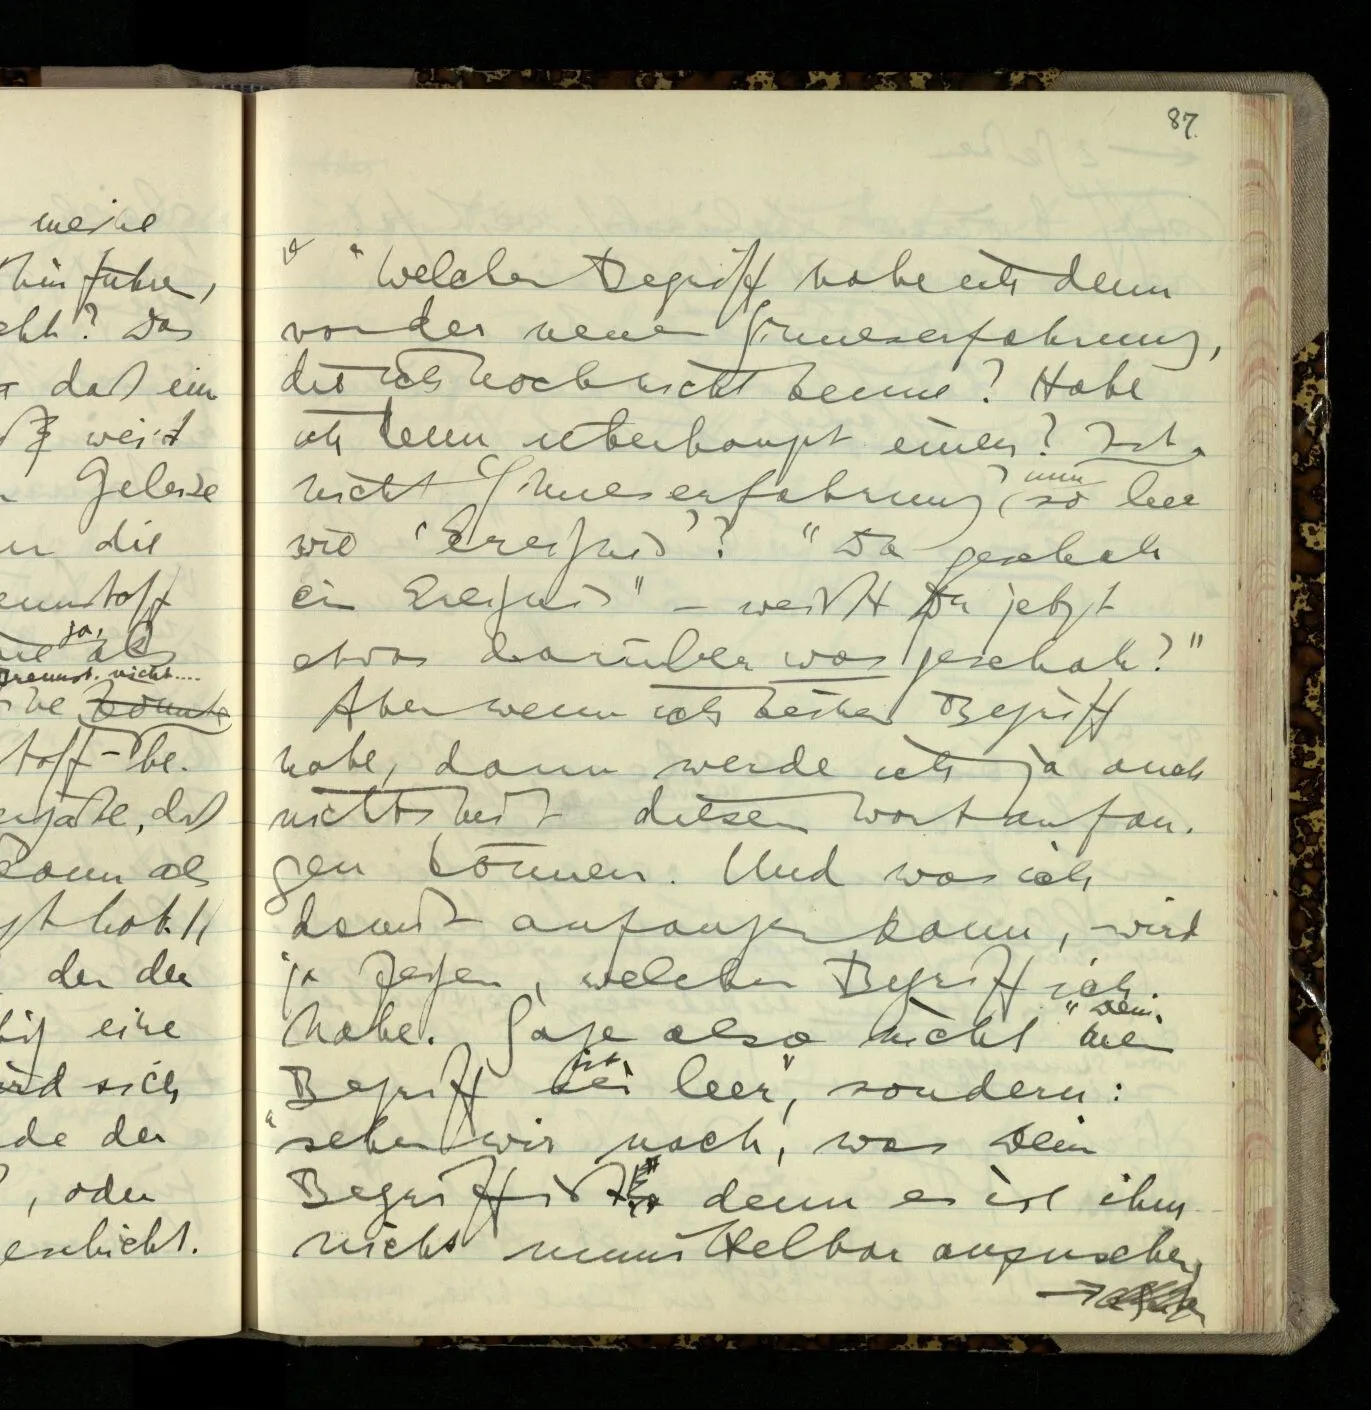 meine
hinführen,
? Das
daß ein
weist
Geleise
die
ja,
als
nicht....
könnte
be.
, daß
kann als
der der
eine
wird sich
der
, oder
geschieht.
87
" Welchen Begriff habe ich denn
von der neuen Sinneserfahrung,
die ich noch nicht kenne? Habe
ich denn überhaupt einen? Ist
nun
nicht 'Sinneserfahrung' so leer
wie 'Ereignis'? "Da geschah
ein Ereignis" – weißt Du jetzt
etwas darüber was geschah?"
Aber wenn ich keinen Begriff
habe, dann werde ich ja auch
nichts mit diesem Wort anfan-
gen können. Und was ich
damit anfangen kann, wird
ja zeigen, welchen Begriff ich
habe. Sage also nicht "Dein
ist
Begriff sei leer", sondern:
"sehen wir nach, was Dein
Begriff ist" denn es ist ihm
nicht unmittelbar anzusehen
→